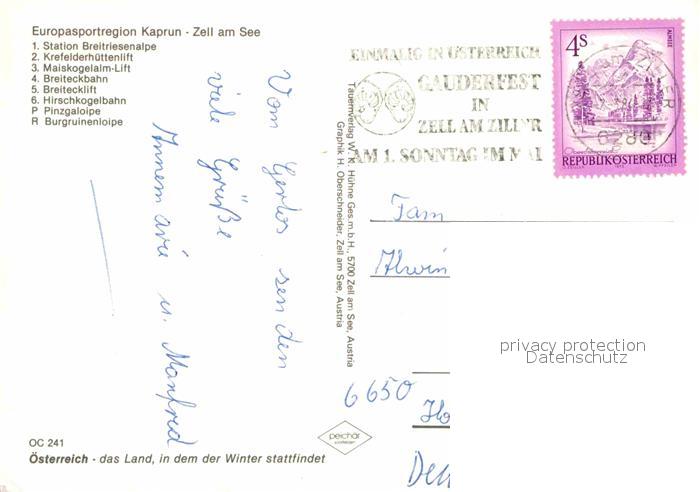 Europasportregion Kaprun - Zell am See
1. Station Breitriesenalpe
2. Krefelderhüttenlift
3. Maiskogelalm-Lift
4. Breiteckbahn
5. Breitecklift
6. Hirschkogelbahn
P Pinzgaloipe
R Burgruinenloipe
Vom Gerlos senden
viele Grüße
Annemarie u. Manfred
OC 241
Österreich - das Land, in dem der Winter stattfindet
Tauernverlag W. K. Hühne Ges.m.b.H., 5700 Zell am See, Austria
Graphik H. Oberschneider, Zell am See, Austria
peichär
EINMALIG IN ÖSTERREICH
GAUDERFEST
IN
ZELL AM ZILLER
AM 1. SONNTAG IM MAI
4S
ALMSEE
REPUBLIK ÖSTERREICH
6280
Fam
Alwin
privacy protection
Datenschutz
6650 Ho
Deu